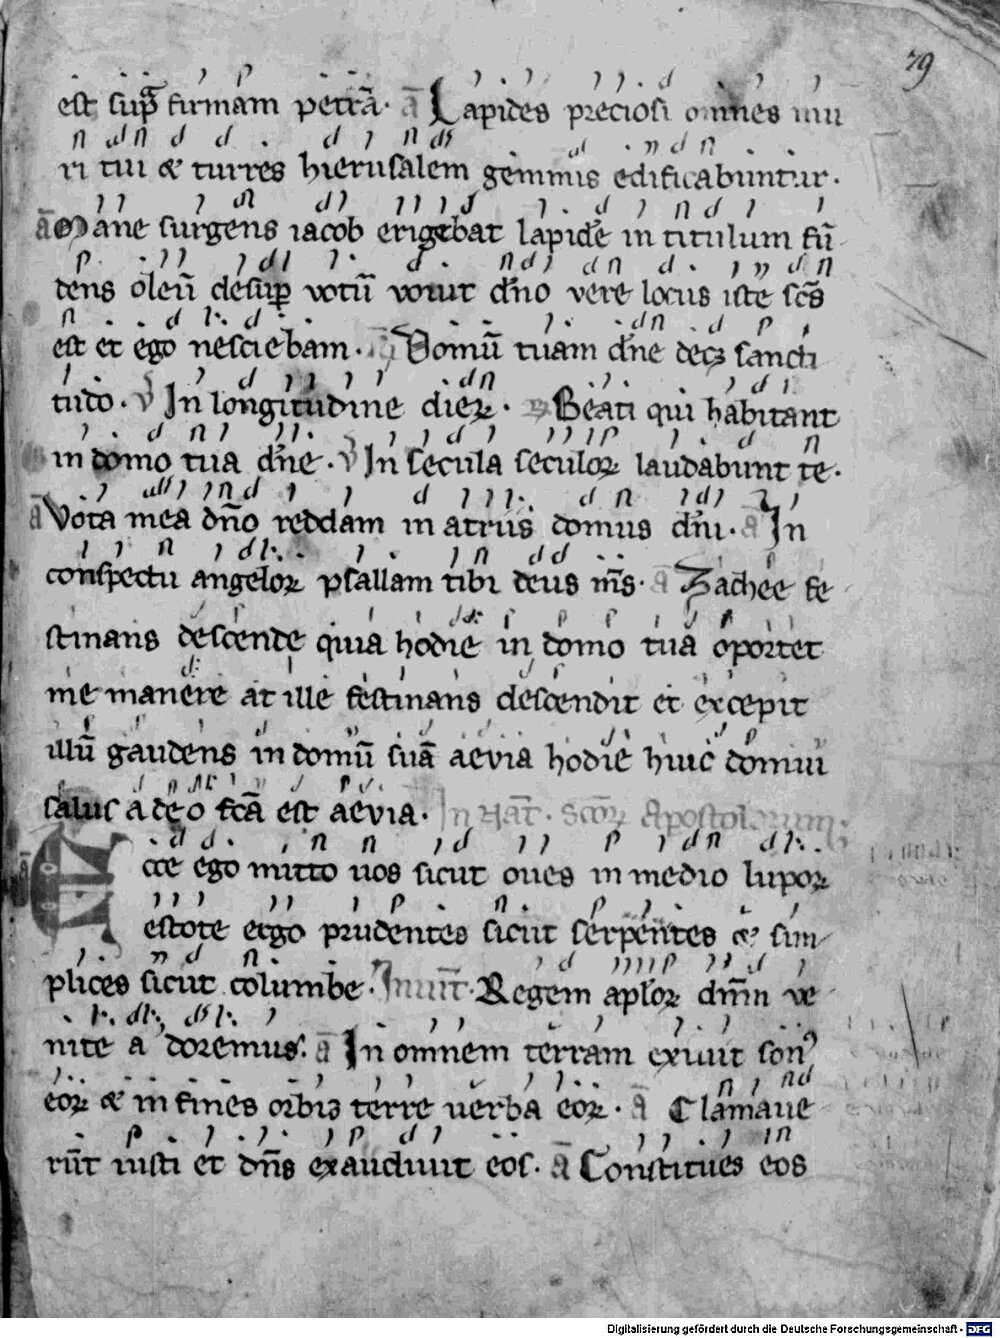 79
est sup̄ firmam petrā. ā Lapides preciosi omnes mu
ri tui & turres hierusalem gemmis edificabuntur.
ā Mane surgens iacob erigebat lapidē in titulum fū
dens oleū desup̄ votū vovit dn̄o vere locus iste scs̄
est et ego nesciebam. Domū tuam dn̄e decꝫ sancti
tudo. v̄ In longitudine dieꝝ. Beati qui habitant
in domo tua dn̄e. v̄ In secula seculoꝝ laudabunt te.
ā Vota mea dn̄o reddam in atriis domus dn̄i. ā In
conspectu angeloꝝ psallam tibi deus ms̄. ā Zachee fe
stinans descende quia hodie in domo tua oportet
me manere at ille festinans descendit et excepit
illū gaudens in domū suā aevia hodie huic domui
salus a deo fc̄a est aevia. In Nat̄. Scōꝝ Apostolorum.
ā Ecce ego mitto uos sicut oues in medio lupoꝝ
estote ergo prudentes sicut serpentes & sim
plices sicut columbe. Inuit̄. Regem apl̄oꝝ dn̄m ve
nite adoremus. ā In omnem terram exiuit sonꝰ
eoꝝ & in fines orbis terre uerba eoꝝ. ā Clamaue
rūt iusti et dn̄s exaudiuit eos. ā Constitues eos
Digitalisierung gefördert durch die Deutsche Forschungsgemeinschaft - DFG